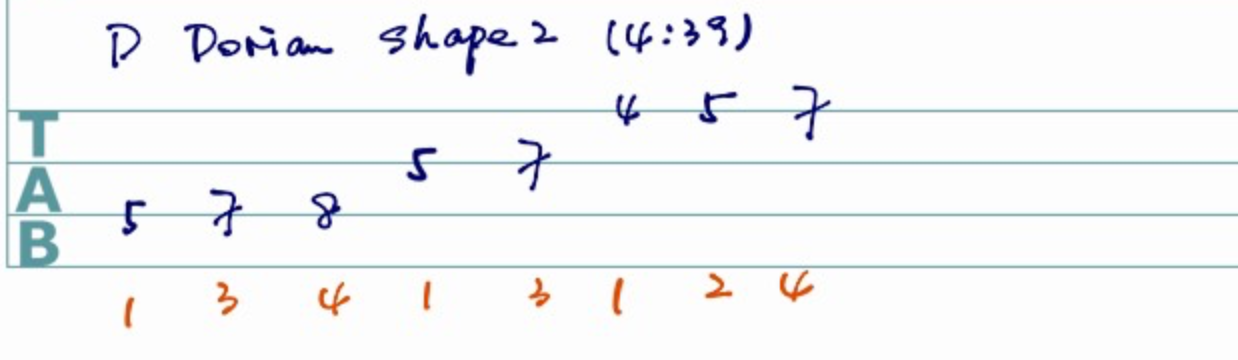 D Dorian shape 2 (4:39)
4 5 7
5 7
5 7 8
TAB
1 3 4 1 3 1 2 4